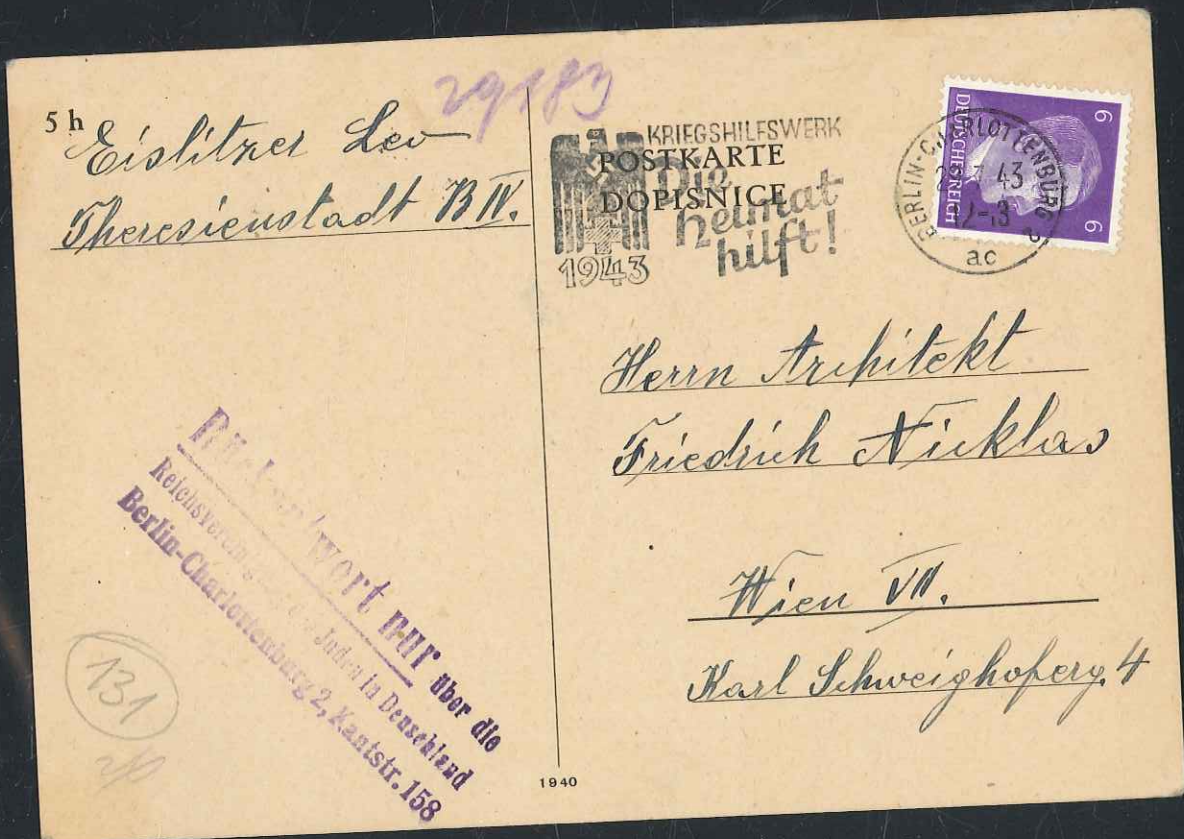 29183
5 h
Eislitzer Leo
Theresienstadt B IV.
KRIEGSHILFSWERK
POSTKARTE
DOPISNICE
Die
Heimat
hilft!
1943
DEUTSCHES REICH
6
6
BERLIN-CHARLOTTENBURG 2
43
12-13
ac
Herrn Architekt
Friedrich Nicklas
Wien VII.
Karl Schweighoferg. 4
Rückantwort nur über die
Reichsvereinigung der Juden in Deutschland
Berlin-Charlottenburg 2, Kantstr. 158
131
1940